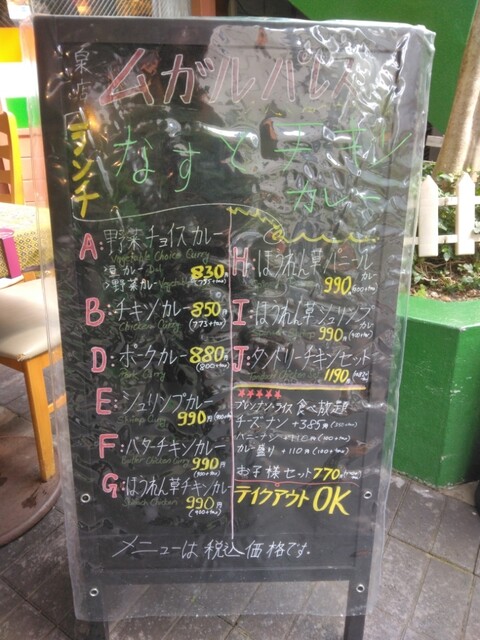 ムガルパレス
ランチ
なすとチキン
カレー
A:野菜チョイスカレー
Vegetable Choice Curry
豆カレー Dal
野菜カレー Vegetable
830円
B:チキンカレー 850円
Chicken Curry (773+tax)
D:ポークカレー 880円
(800+tax)
E:シュリンプカレー
990円
F:バターチキンカレー
Butter Chicken Curry 990円
(900+tax)
G:ほうれん草チキンカレー
990円
(900+tax)
H:ほうれん草パニール
カレー
990円 (900+tax)
I:ほうれん草シュリンプ
カレー
990円 (900+tax)
J:タンドリーチキンセット
1190円
★★★★★
プレンナン・ライス 食べ放題
チーズナン +385円 (350+tax)
ハニーナン +110円 (100+tax)
カレー盛り +110円 (100+tax)
お子様セット770円
テイクアウトOK
メニューは税込価格です。